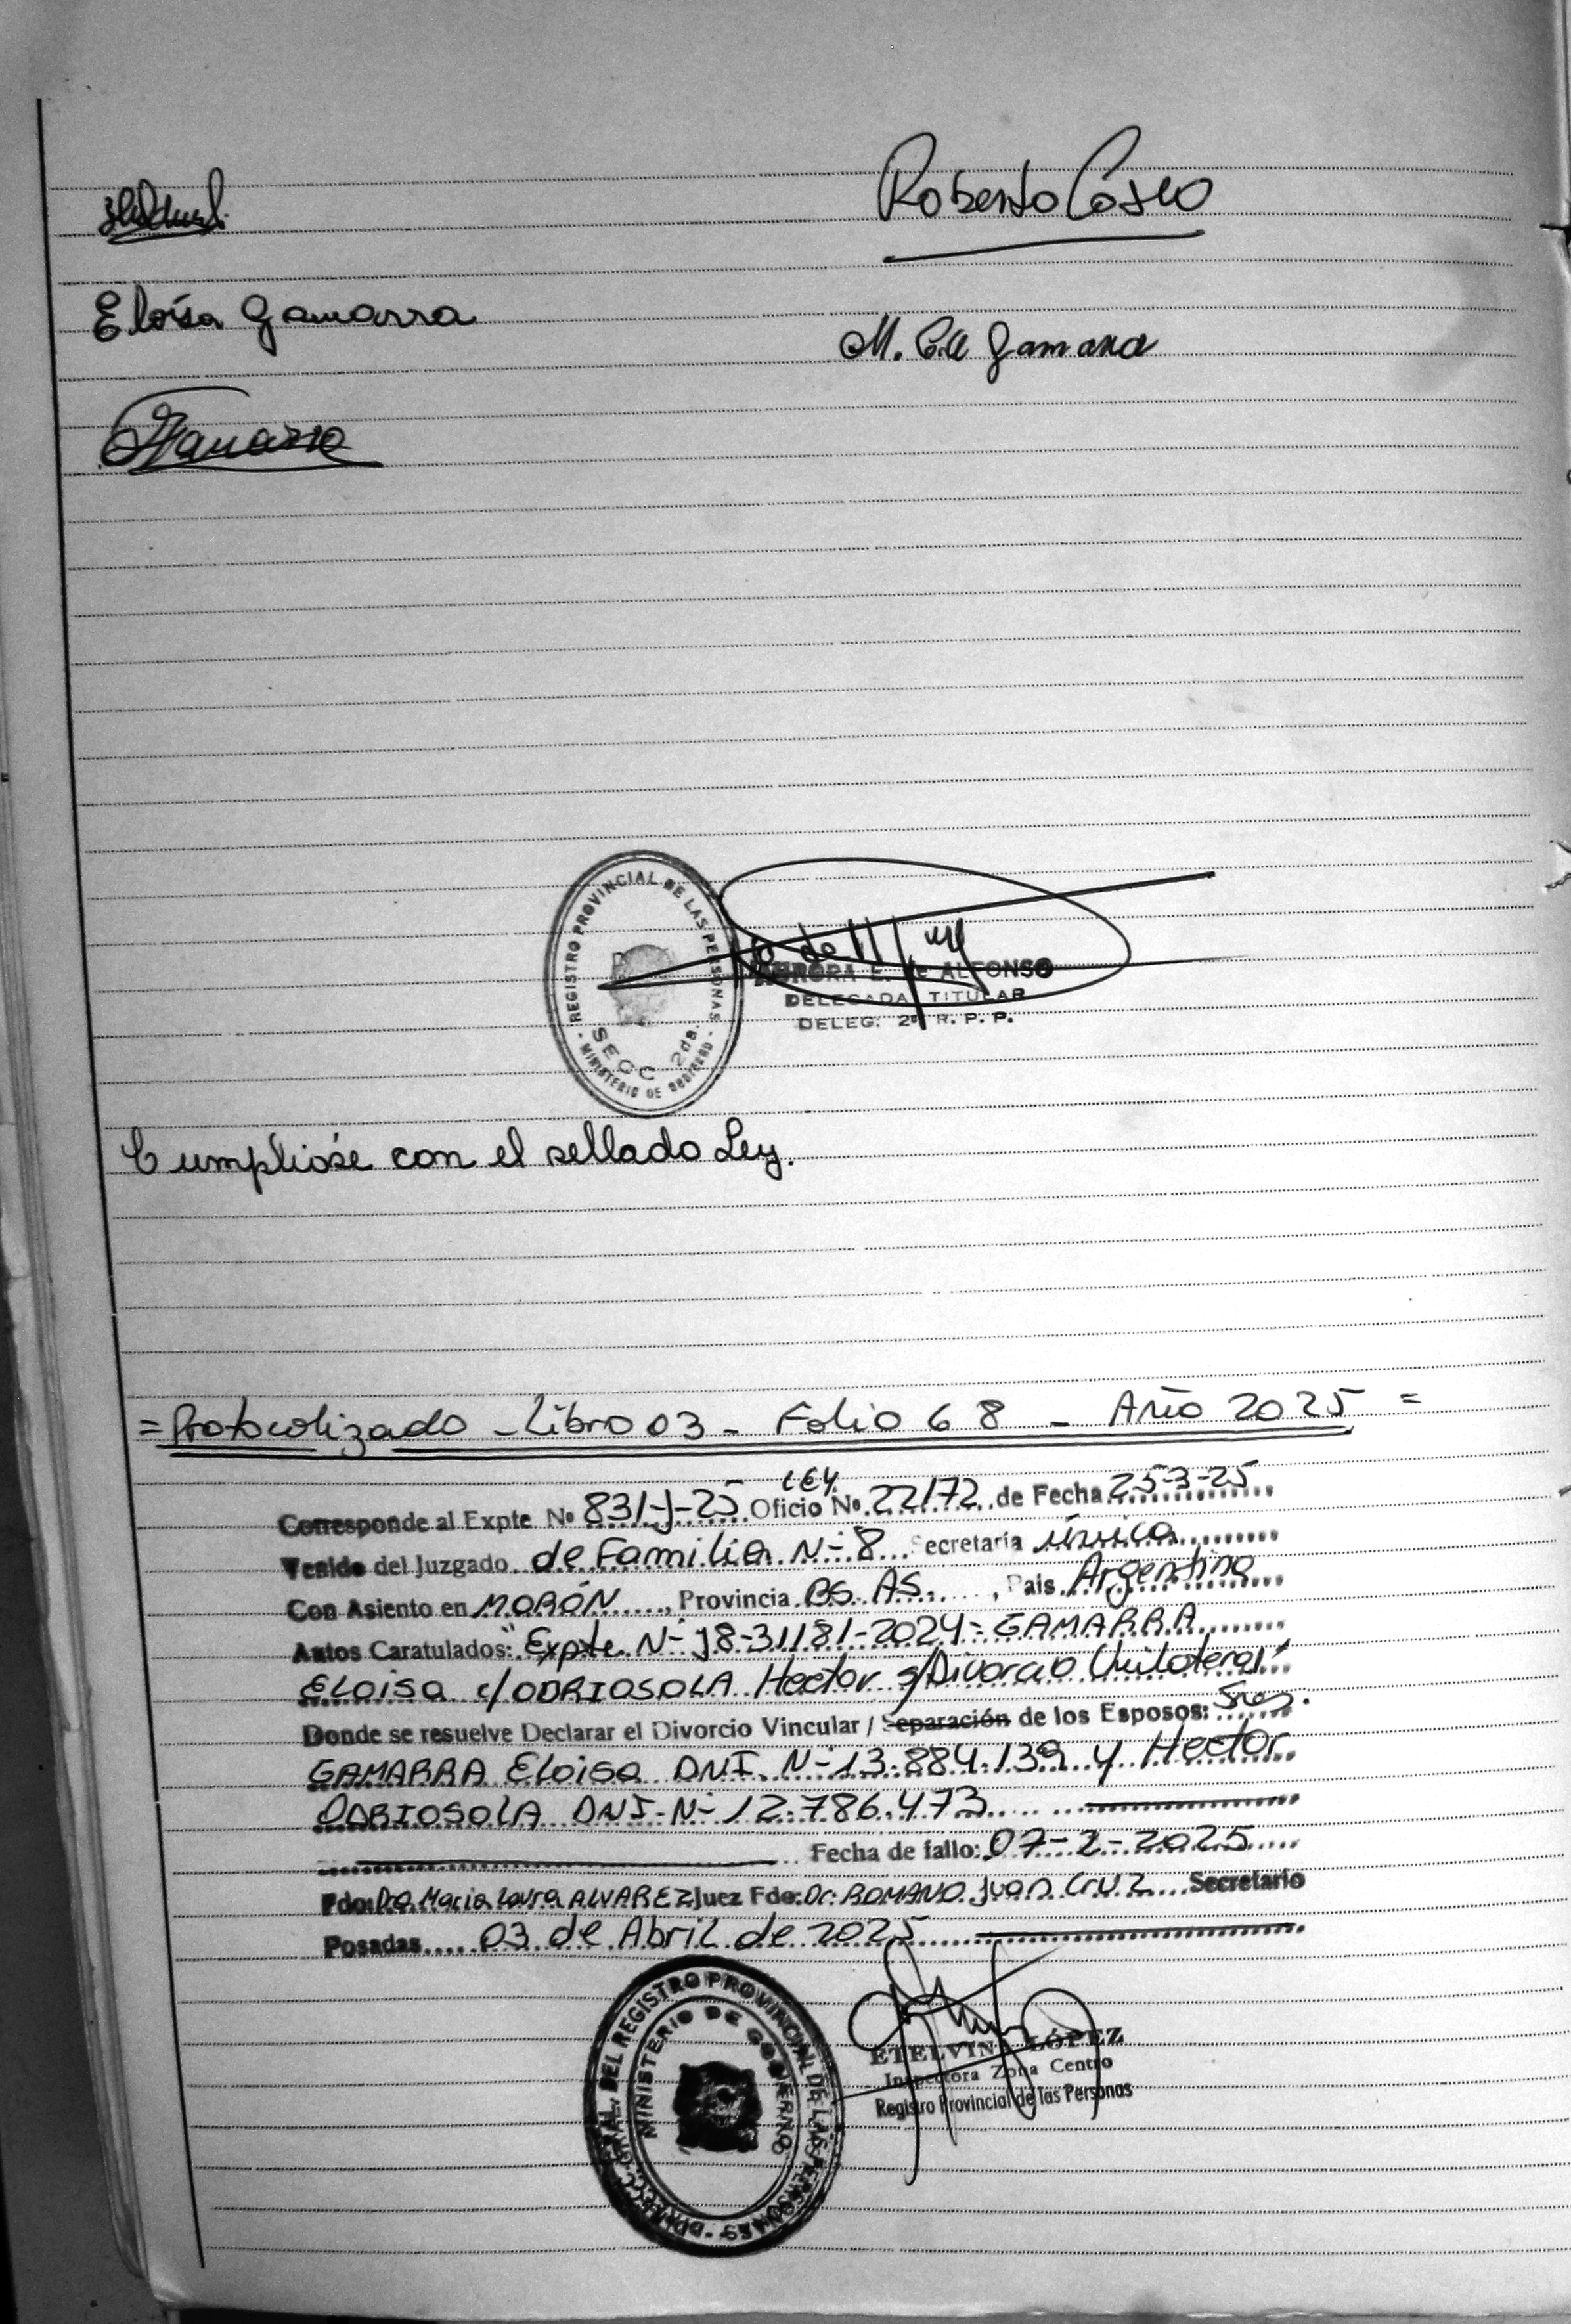 Roberto Cosso
Eloísa Gamarra
M. C. de Gamarra
REGISTRO PROVINCIAL DE LAS PERSONAS
SECC 2da.
- MINISTERIO DE GOBIERNO -
AURORA E. de ALFONSO
DELEGADA TITULAR
DELEG. 2ª R. P. P.
Cumplióse con el sellado Ley.
= Protocolizado - Libro 03 - Folio 68 - Año 2025 =
LEY.
Corresponde al Expte Nº 831-J-25 Oficio Nº 22172 de Fecha 25-3-25
Venido del Juzgado de Familia Nº 8 Secretaria única
Con Asiento en MORÓN, Provincia BS. AS., Pais Argentina
Autos Caratulados: "Expte Nº J8-31181-2024- GAMARRA
ELOisa c/ ODRIOSOLA Hector s/Divorcio Unilateral"
Donde se resuelve Declarar el Divorcio Vincular / Separación de los Esposos: Sres.
GAMARRA Eloisa DNI. Nº 13.884.139 y Hector
ODRIOSOLA DNI. Nº 12.786.473
Fecha de fallo: 07-2-2025
Fdo: Dra. Maria Laura ALVAREZ Juez Fdo: Dr. ROMANO Juan Cruz Secretario
Posadas 03 de Abril de 2025
DIRECC. GRAL. DEL REGISTRO PROVINCIAL DE LAS PERSONAS
MINISTERIO DE GOBIERNO
ETELVINA LÓPEZ
Inspectora Zona Centro
Registro Provincial de las Personas